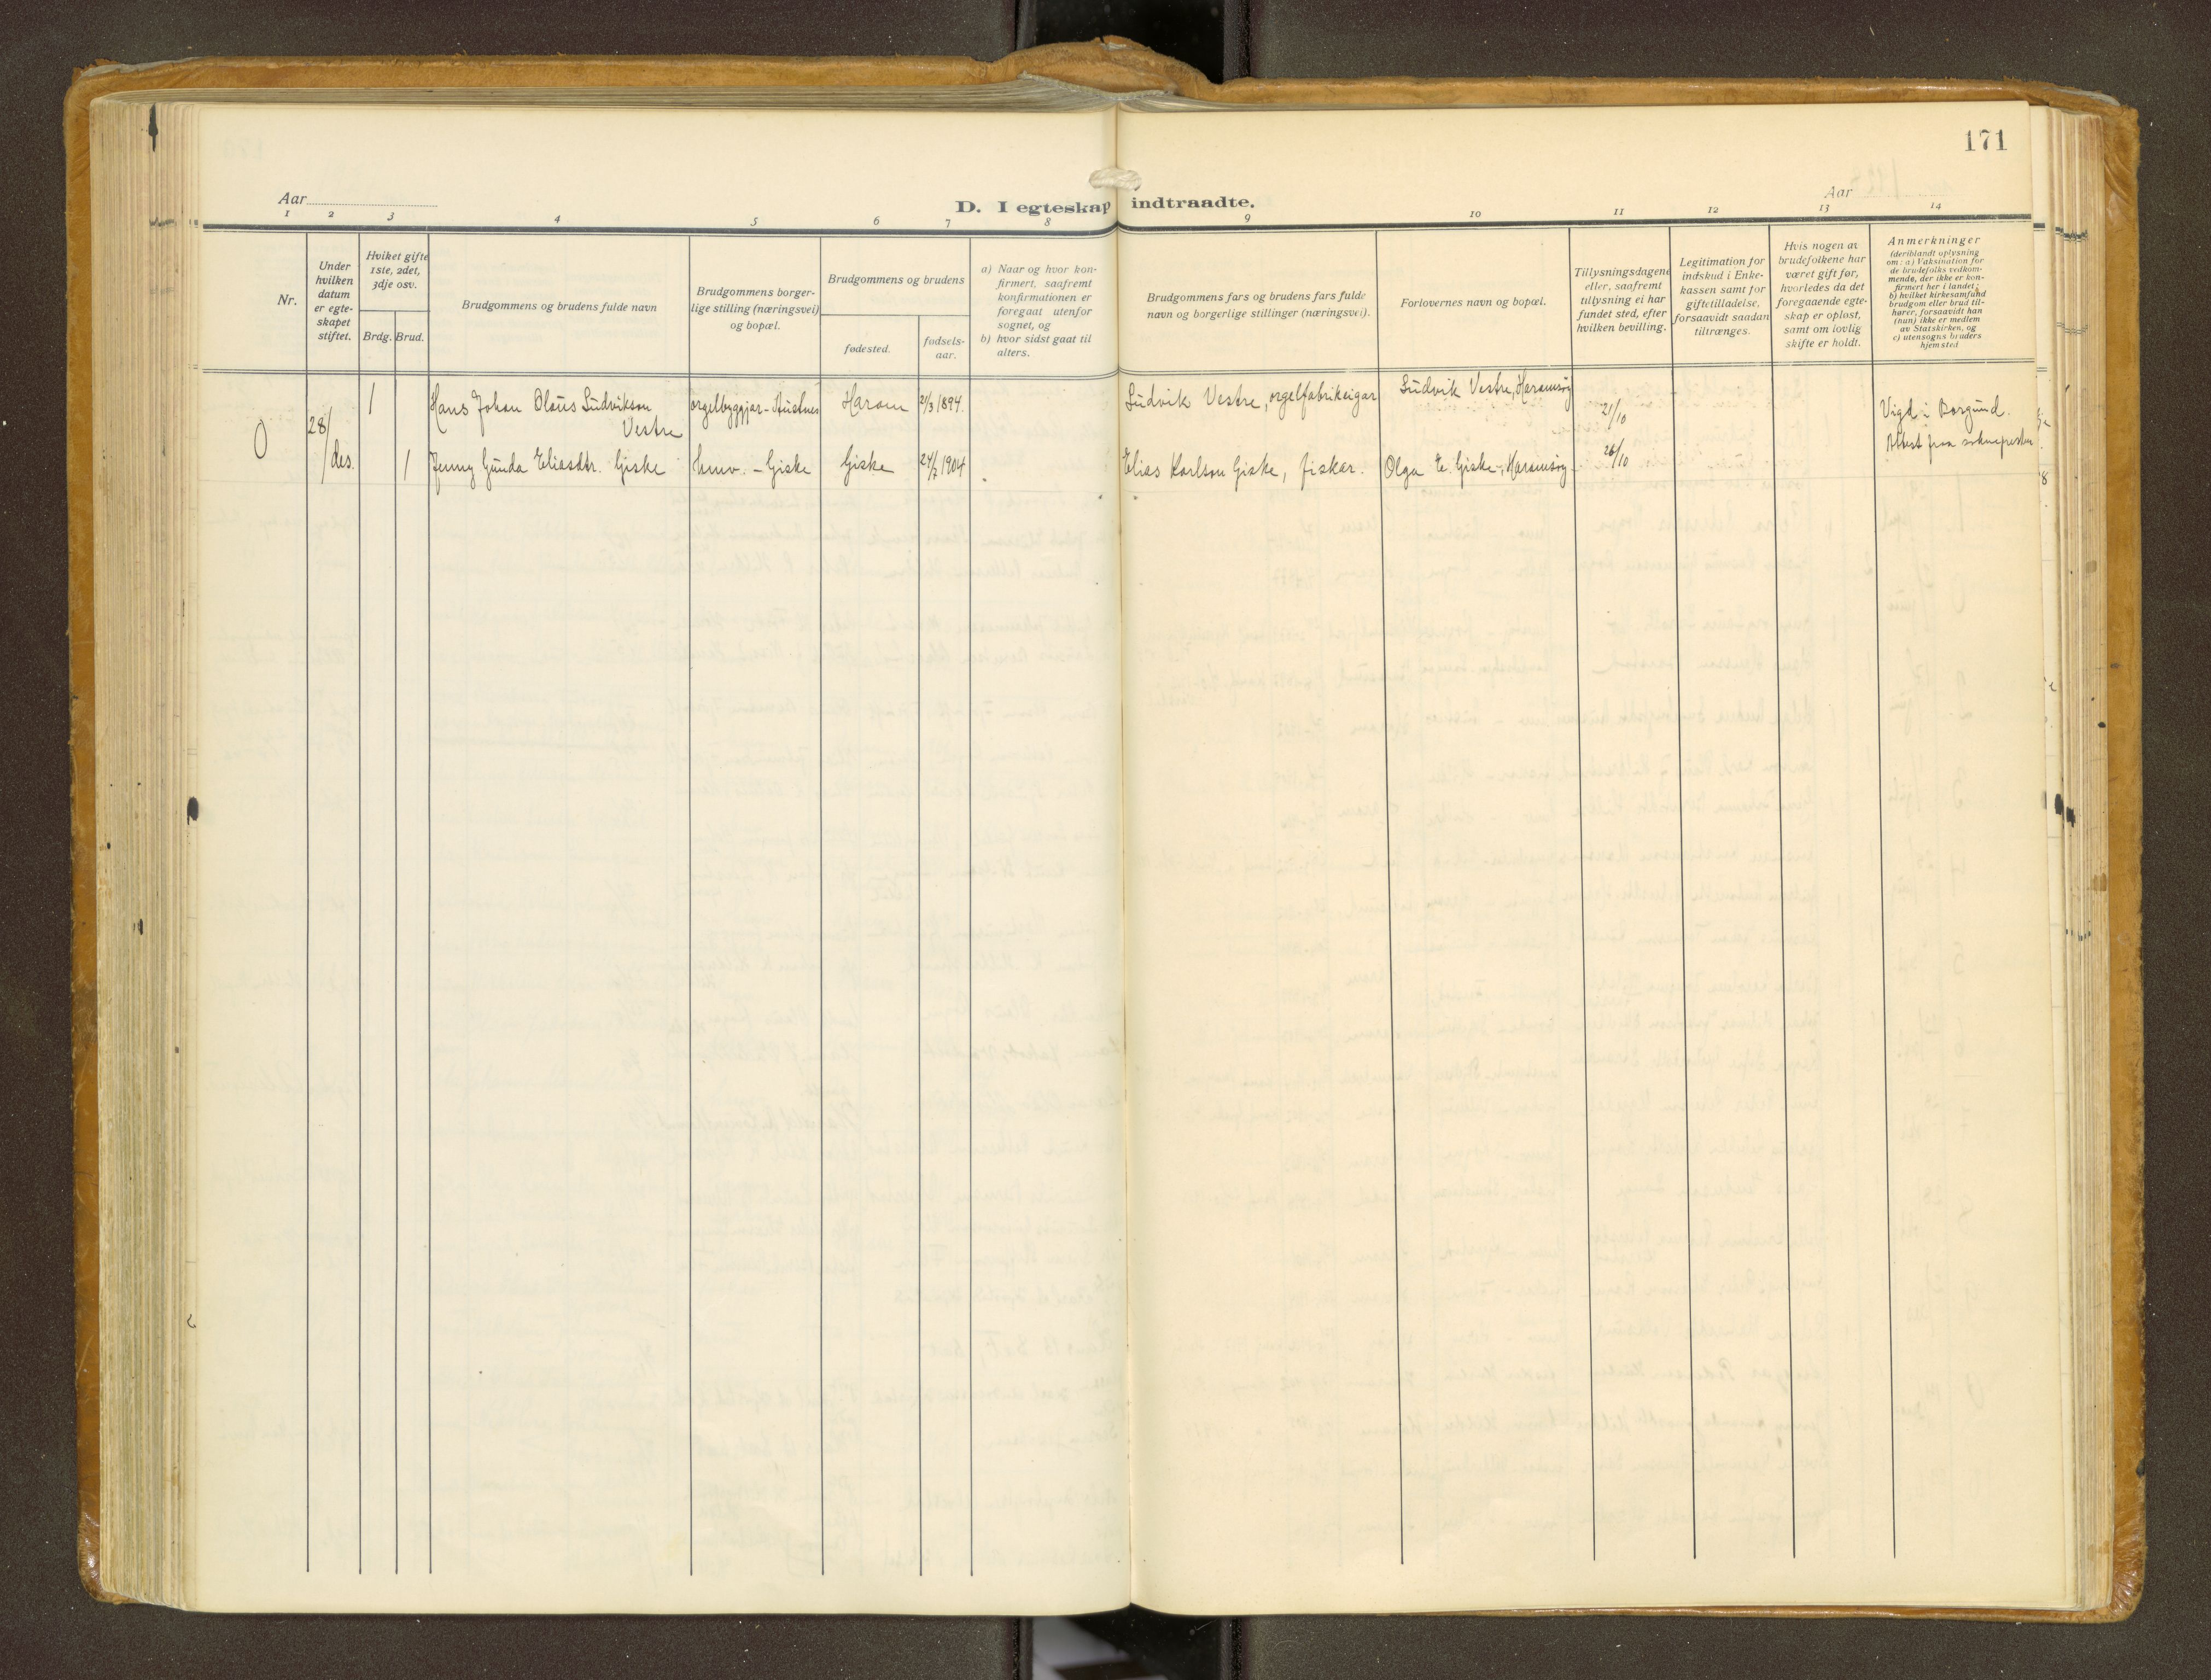 171
Aar
D. I egteskap indtraadte.
Aar
1 2 3 4 5 6 7 8 9 10 11 12 13 14
Nr.
Under hvilken datum er egteskapet stiftet.
Hviket gifte 1ste, 2det, 3dje osv.
Brdg. Brud.
Brudgommens og brudens fulde navn
Brudgommens borgerlige stilling (næringsvei) og bopæl.
Brudgommens og brudens
fødested.
fødselsaar.
a) Naar og hvor konfirmert, saafremt konfirmationen er foregaat utenfor sognet, og
b) hvor sidst gaat til alters.
Brudgommens fars og brudens fars fulde navn og borgerlige stillinger (næringsvei).
Forlovernes navn og bopæl.
Tillysningsdagene eller, saafremt tillysning ei har fundet sted, efter hvilken bevilling.
Legitimation for indskud i Enkekassen samt for giftetilladelse, forsaavidt saadan tiltrænges.
Hvis nogen av brudefolkene har været gift før, hvorledes da det foregaaende egteskap er opløst, samt om lovlig skifte er holdt.
Anmerkninger (deriblandt oplysning om: a) Vaksination for de brudefolks vedkommende, der ikke er konfirmert her i landet; b) hvilket kirkesamfund brudgom eller brud tilhører, forsaavidt han (hun) ikke er medlem av Statskirken, og c) utensogns bruders hjemsted
0 28/des.
1 Hans Johan Olaus Ludvikson Vestre orgelbyggjar - Austnes Haram 21/3 1894. Ludvik Vestre, orgelfabrikeigar Ludvik Vestre, Haramsøy 21/10 Vigd i Borgund.
1 Jenny Gunda Eliasdtr. Giske husv. - Giske Giske 24/7 1904 Elias Karlson Giske, fiskar. Olga E. Giske, Haramsøy 28/10 Attest fraa soknepresten